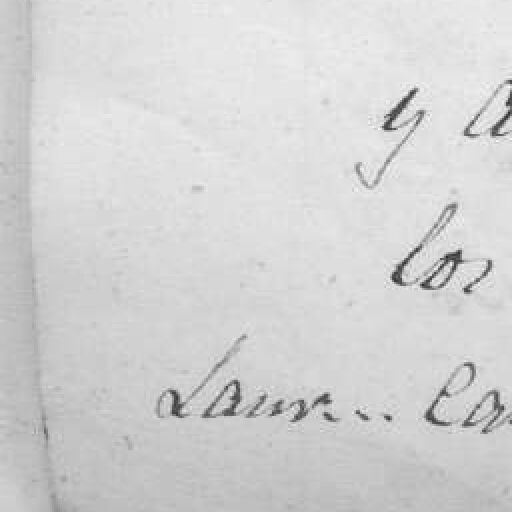 y a
los
Laur... Ca